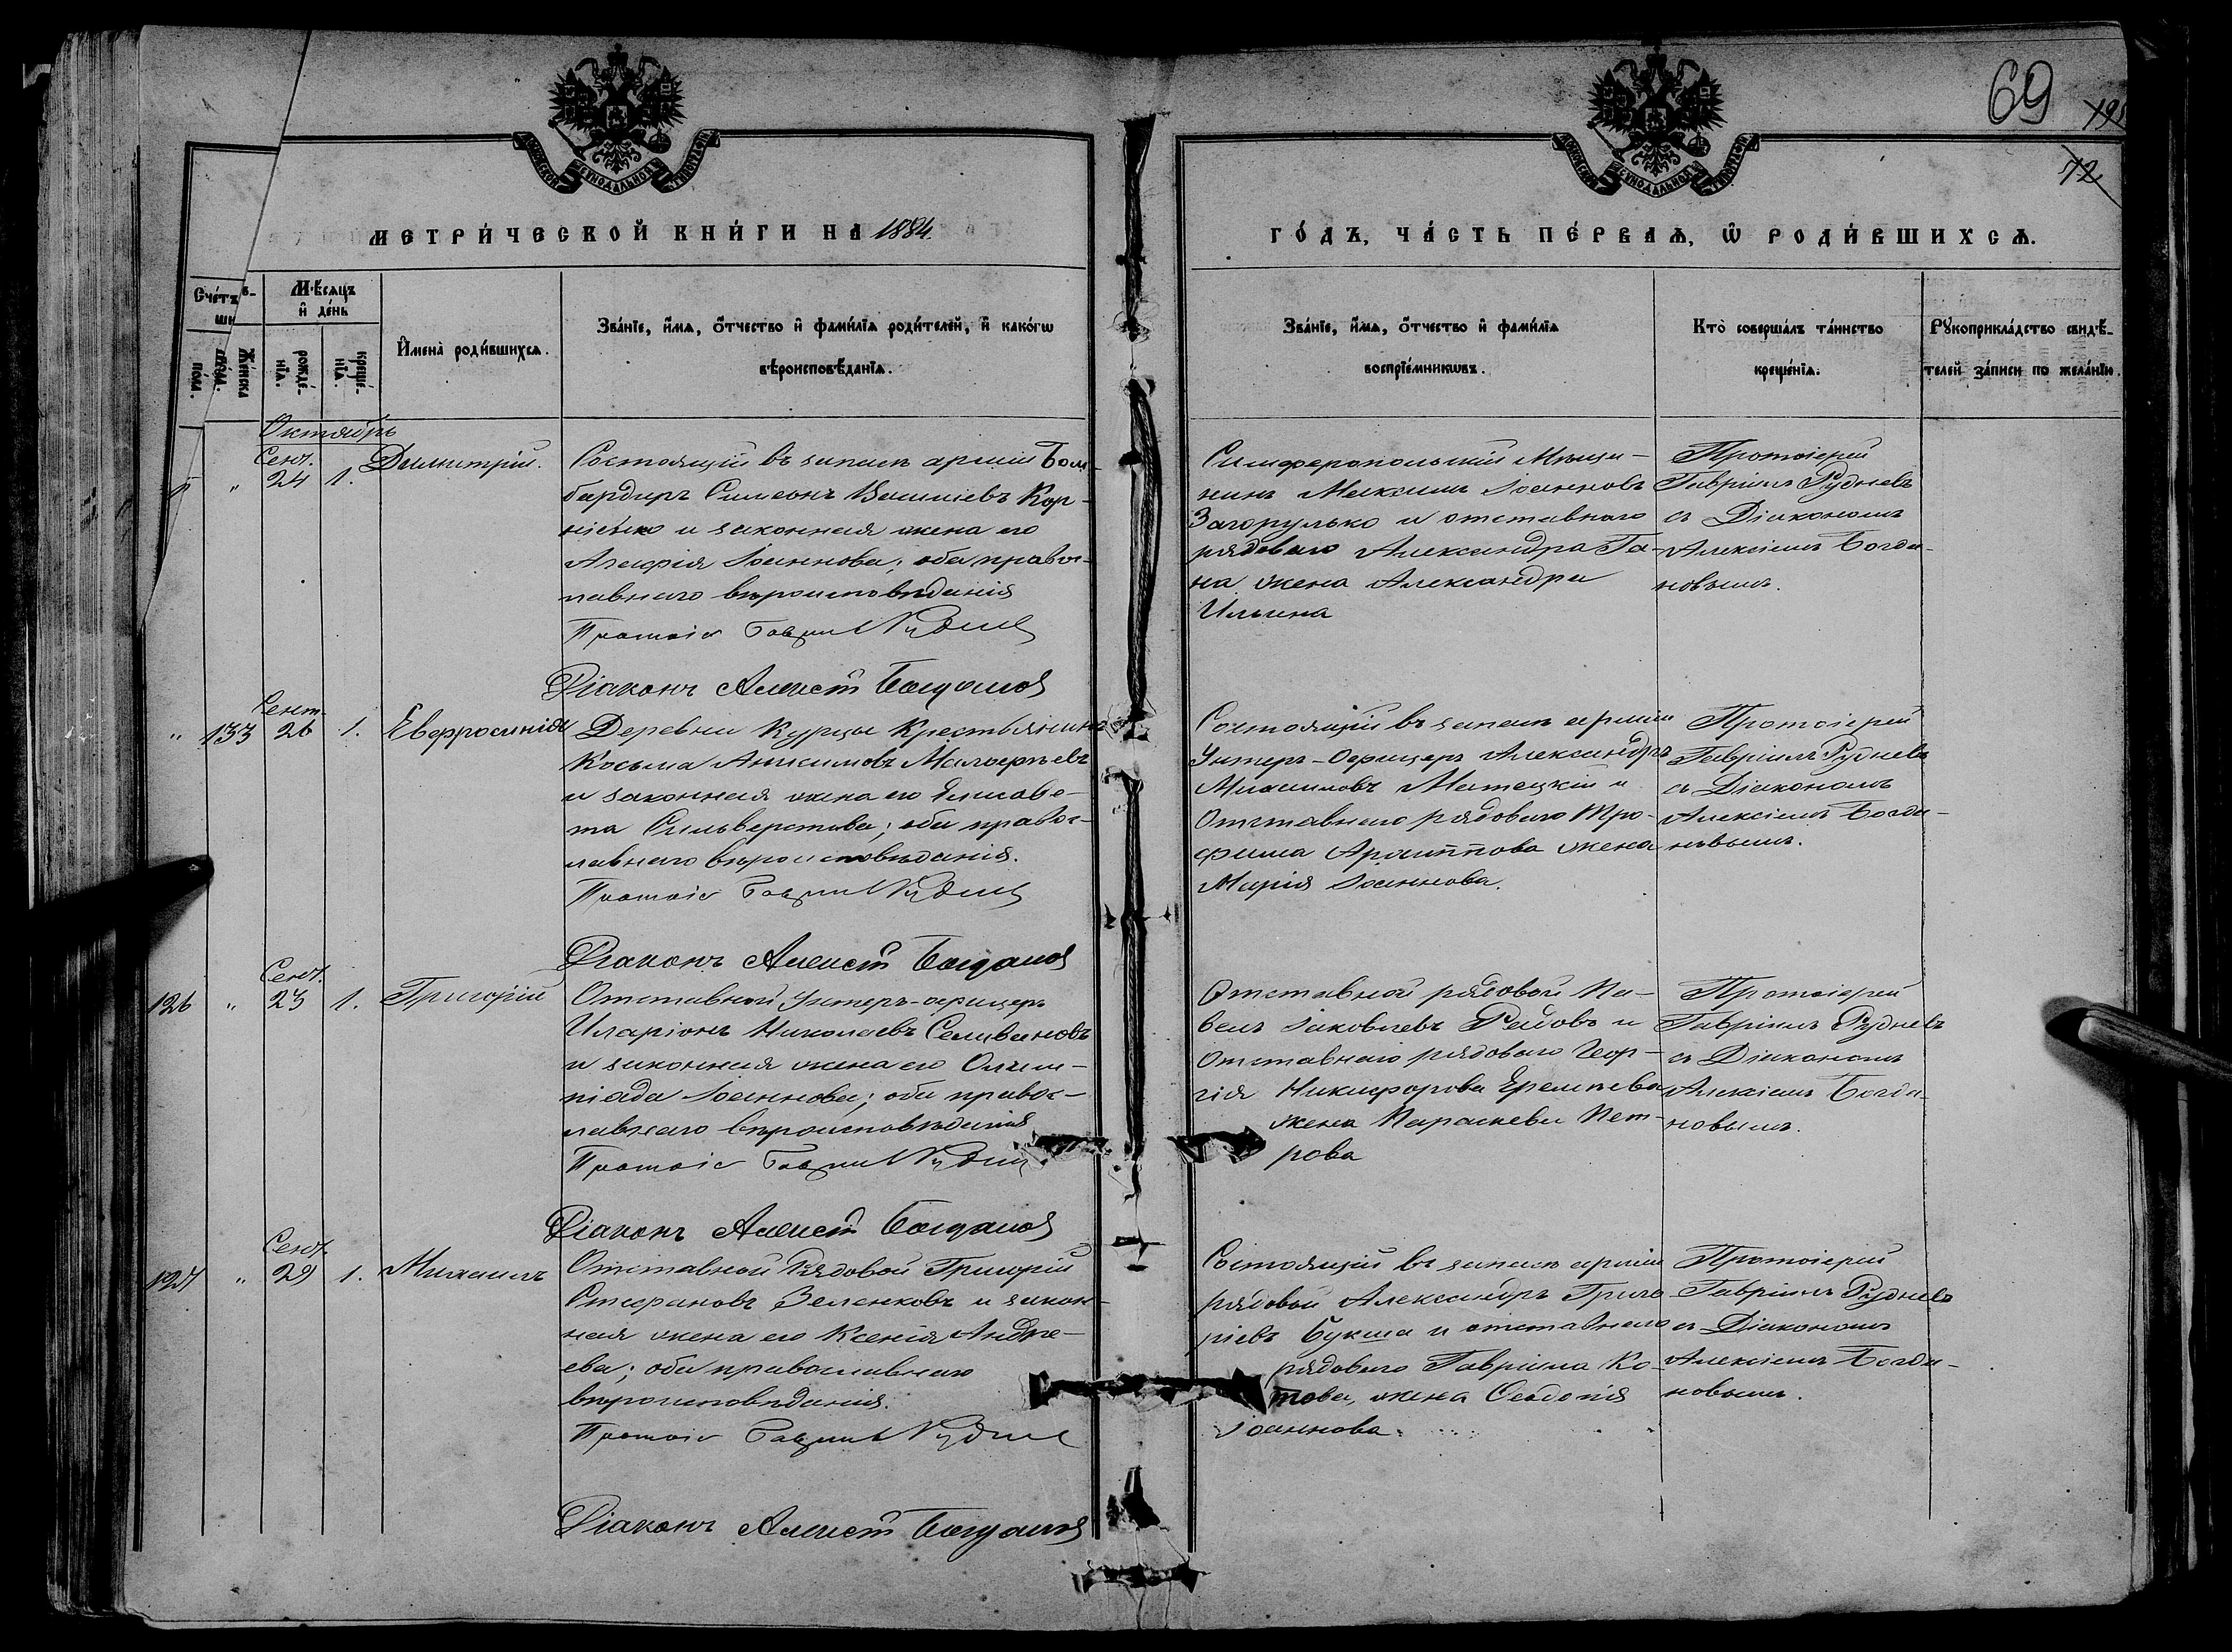 69
72
МЕТРИ́ЧЕСКОЙ КНИ́ГИ НА 1884
ГО́ДЪ, ЧА́СТЬ ПЕ́РВАЯ, Ѡ РОДИ́ВШИХСЯ.
Сче́тъ
Мѣ́сяцъ и де́нь
рожде́нїѧ.
креще́нїѧ.
Имена̀ роди́вшихсѧ.
Зва́нїе, и́мѧ, о́тчество и фами́лїѧ роди́телей, и како́гѡ
вѣроисповѣ́данїѧ.
Зва́нїе, и́мѧ, о́тчество и фами́лїѧ
воспрїе́мникѡвъ.
Кто̀ соверша́лъ та́инство
креще́нїѧ.
Рꙋкоприкла́дство свидѣ́-
телей за́писи по жела́нїю.
Октябрь
Сент.
24 1. Димитрій.
Состоящій въ запасѣ арміи Бом-
бардиръ Симеонъ Василіевъ Кор-
нієнко и законная жена его
Агафія Іоаннова; оба правос-
лавнаго вѣроисповѣданія
Діаконъ Алексій Богдановъ
Симферопольскій Мѣща-
нинъ Максимъ Іоанновъ
Загорулько и отставнаго
рядоваго Александра Га-
на жена Александра
Ильина
Протоіерей
Гавріилъ Рудневъ
съ Діакономъ
Алексіемъ Богда-
новымъ.
" 133 Сент. 26 1. Евфросинія
Деревни Курцы Крестьянинъ
Косьма Анисимовъ Малоерѣевъ
и законная жена его Елисаве-
та Сильверстова; оба правос-
лавнаго вѣроисповѣданія.
Діаконъ Алексій Богдановъ
Состоящій въ запасѣ арміи
Унтеръ-Офицеръ Александръ
Михаиловъ Матецкій и
Отставнаго рядоваго Тро-
фима жена
Марія Іоаннова.
Протоіерей
Гавріилъ Рудневъ
съ Діакономъ
Алексіемъ Богда-
новымъ.
126 " Сент. 23 1. Григорій
Отставной Унтеръ-офицеръ
Иларіонъ Николаевъ Селивановъ
и законная жена его Олим-
піада Іоаннова; оба правос-
лавнаго вѣроисповѣданія
Діаконъ Алексій Богдановъ
Отставной рядовой Па-
велъ Іаковлевъ и
Отставнаго рядоваго Геор-
гія Никифорова Еремѣева
жена Параскева Пет-
рова
Протоіерей
Гавріилъ Рудневъ
съ Діакономъ
Алексіемъ Богда-
новымъ.
127 " Сент. 29 1. Михаилъ
Отставной Рядовой Григорій
Стефановъ Зеленковъ и закон-
ная жена его Ксенія Андре-
ева; оба православнаго
вѣроисповѣданія.
Діаконъ Алексій Богдановъ
Состоящій въ запасѣ арміи
рядовой Александръ Григо-
ріевъ Букша и отставнаго
рядоваго Гавріила Ко-
това, жена Ѳеодосія
Іоаннова.
Протоіерей
Гавріилъ Рудневъ
съ Діакономъ
Алексіемъ Богда-
новымъ.